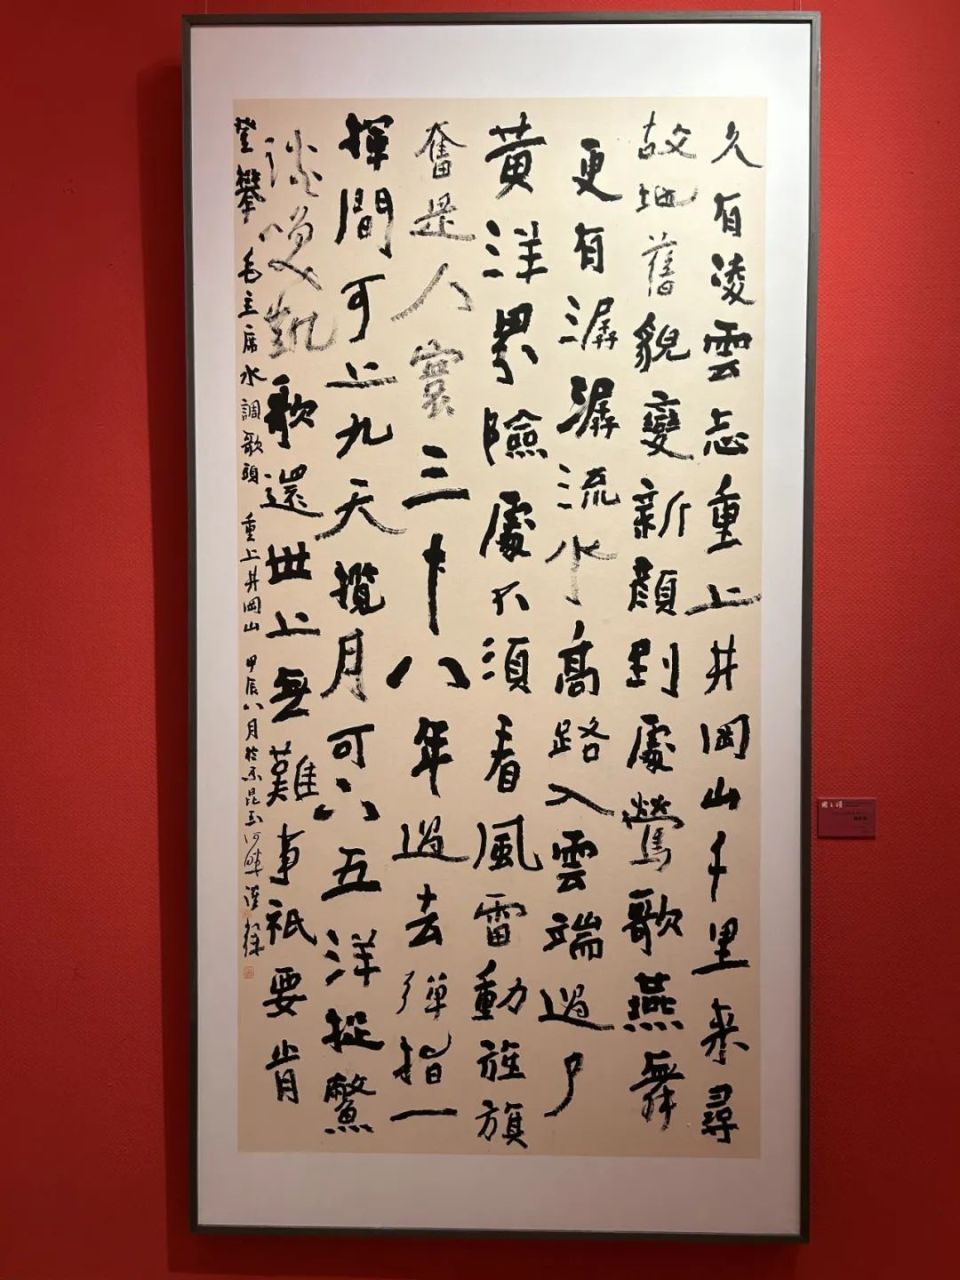 久有凌雲志重上井岡山千里来尋
故地舊貌變新顏到處鶯歌燕舞
更有潺潺流水高路入雲端過了
黃洋界險處不須看風雷動旌旗
奮是人寰三十八年過去彈指一
揮間可上九天攬月可下五洋捉鱉
談笑凱歌還世上無難事祇要肯
登攀 毛主席水調歌頭 重上井岡山 甲辰八月於京昆玉河畔